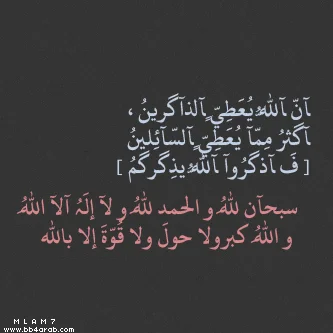 آنّ آللهُ يُعَطِيّ آلذآگرينُ ،
آگثرُ مِمّآ يُعَطِيّ آلسّآئِلِينُ
[ فَ آذگرُوآ آللهُ يذِگرگمُ ]
سبحآن للهُ و الحمد للهُ و لآ إلَہُ آلآ اللهُ
و اللهُ كبرولا حولَ ولا قُوّةَ إلا بالله
M L A M 7
www.bb4arab.com